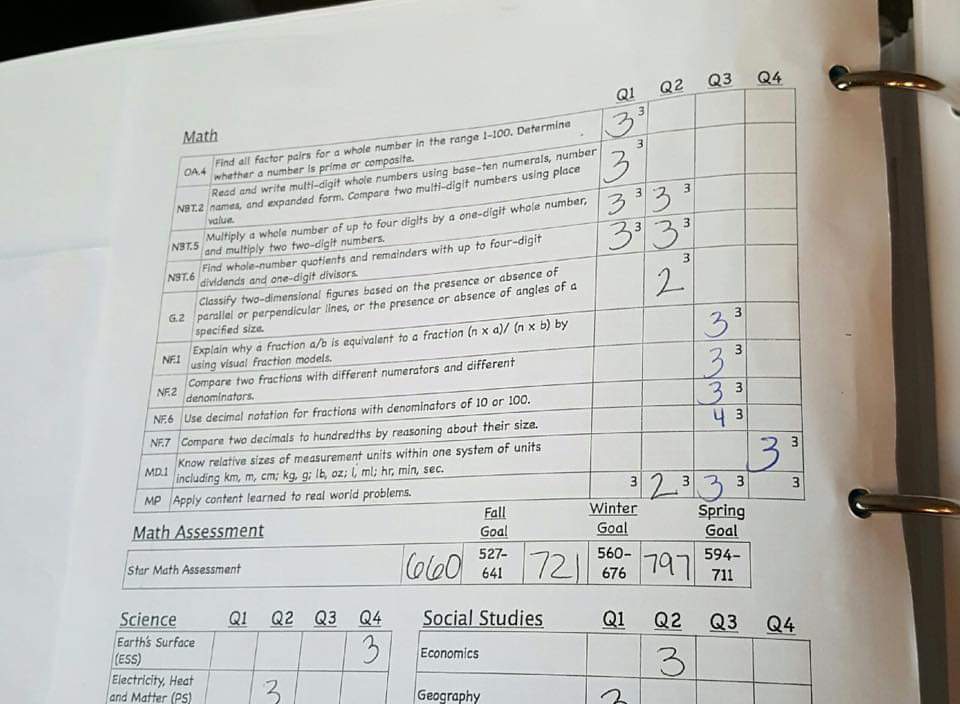 Q1 Q2 Q3 Q4
Math
OA.4 Find all factor pairs for a whole number in the range 1-100. Determine 3 3
whether a number is prime or composite.
NBT.2 Read and write multi-digit whole numbers using base-ten numerals, number 3 3
names, and expanded form. Compare two multi-digit numbers using place
value.
NBT.5 Multiply a whole number of up to four digits by a one-digit whole number, 3 3 3 3
and multiply two two-digit numbers.
NBT.6 Find whole-number quotients and remainders with up to four-digit 3 3 3 3
dividends and one-digit divisors.
G.2 Classify two-dimensional figures based on the presence or absence of 2 3
parallel or perpendicular lines, or the presence or absence of angles of a
specified size.
NF.1 Explain why a fraction a/b is equivalent to a fraction (n x a)/ (n x b) by 3 3
using visual fraction models.
NF.2 Compare two fractions with different numerators and different 3 3
denominators.
NF.6 Use decimal notation for fractions with denominators of 10 or 100. 3 3
NF.7 Compare two decimals to hundredths by reasoning about their size. 4 3
MD.1 Know relative sizes of measurement units within one system of units 3 3
including km, m, cm; kg, g; lb, oz; l, ml; hr, min, sec.
MP Apply content learned to real world problems. 3 2 3 3 3 3
Math Assessment Fall Goal Winter Goal Spring Goal
Star Math Assessment 660 527-641 721 560-676 797 594-711
Science Q1 Q2 Q3 Q4
Earth's Surface 3
(ESS)
Electricity, Heat 3
and Matter (PS)
Social Studies Q1 Q2 Q3 Q4
Economics 3
Geography 3